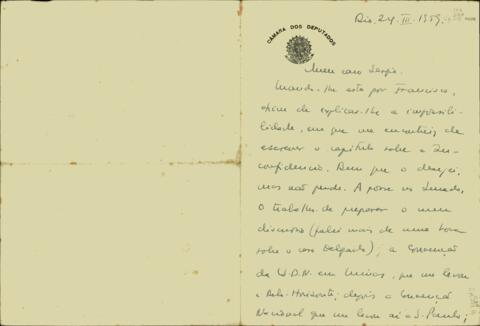 Rio, 24. III. 1959.
CÂMARA DOS DEPUTADOS
Meu caro Sergio.
Mando-lhe esta por Francisco,
afim de explicar-lhe a impossibi-
lidade, em que me encontrei, de
escrever o capítulo sobre a In-
confidencia. Bem que o desejei,
mas não pude. A posse no Senado,
o trabalho de preparar o meu
discurso (falei mais de uma hora
sobre o caso Delgado); a Convenção
da U.D.N. em Minas, que me levou
a Belo-Horizonte; depois a Convenção
Nacional que me levou aí a S. Paulo;